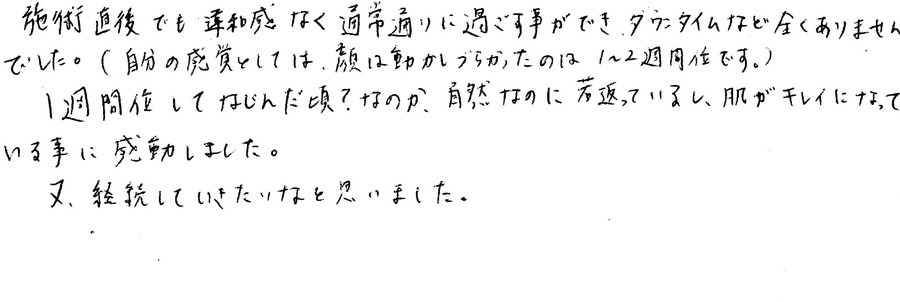 施術直後でも違和感なく通常通りに過ごす事ができ、ダウンタイムなど全くありません
でした。(自分の感覚としては、顔は動かしづらかったのは1〜2週間位です。)
1週間位してなじんだ頃?なのか、自然なのに若返っているし、肌がキレイになって
いる事に感動しました。
又、経続していきたいなと思いました。